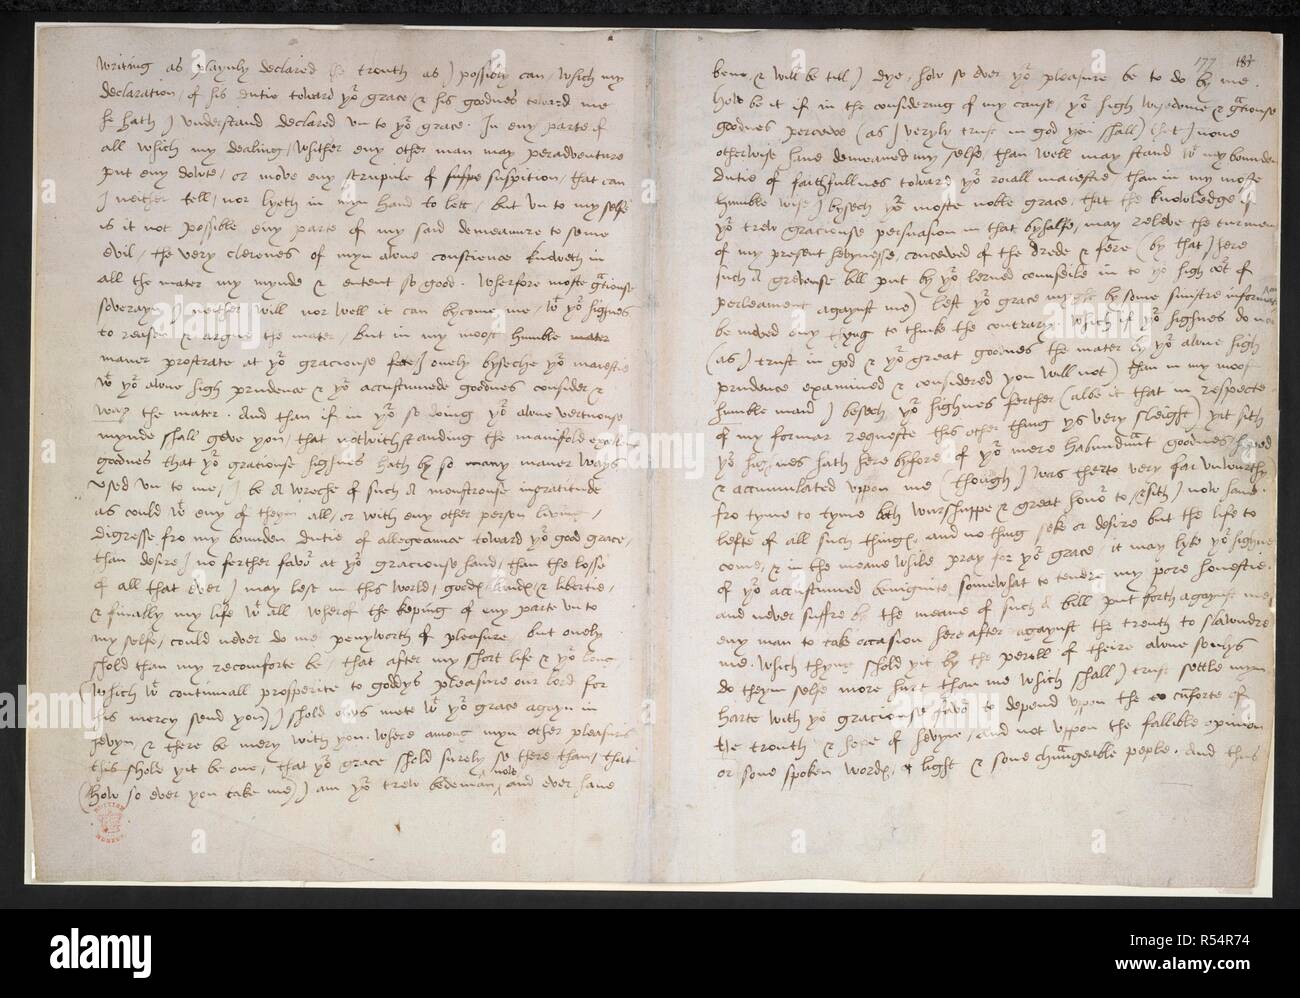 writing as playnly declared the trouth as I possibly can / which my
declaration / of his dutie toward yor grace / & his goodnes toward me
he hath I understand declared un to yor grace. In eny parte of
all which my dealing / whither eny other man may peradventure
put eny dowte / or move eny scrupule of suffpe suspition / that can
I neither tell / nor lyeth in myn hand to lett / but un to my selfe
is it not possible eny parte of my said demeanure to seme
evil / the very clerenes of myn awne conscience knoweth in
all the mater my mynde & entent so good. Wherfore moste gratiouse
soverayn I neither will nor well it can bycome me / wt yor highnes
to reason & argue the mater / but in my moost humble mater
maner prostrate at yor graciouse fete I onely byseche yor maiestie
wt yor awne high prudence & yor accustumed goodnes consider &
way the mater. And than if in yor so doing yor awne vertuouse
mynde shall geve you / that notwithstanding the manifold
goodnes that yor gratiouse highnes hath by so many maner ways
used un to me / I be a wreche of such a monstrouse ingratitude
as could wt eny of theym all / or with eny other person living /
digresse fro my bounden dutie of allegeaunce toward yor good grace /
than desire I no ferther favor at yor graciouse hand / than the losse
of all that ever I may lese in this world / goodes landes & libertie /
& finally my life wt all wherof the keping of eny parte un to
my selfe / could never do me penyworth of pleasure / but onely
shold than my reconforte be / that after my short life & yor long
(which wt continuall prosperite to goddys pleasure our lord for
his mercy send you) I shold ons mete wt yor grace agayn in
hevyn / & there be mery with you. where among myn other pleasures
this shold yit be one / that yor grace shold surely se there than / that
(how so ever you take me) I am yor trew bedeman now and ever have
177 183
bene & will be till I dye / how so ever yor pleasure be to do by me.
How be it if in the considering of my cause / yor high wisedome & gratiouse
goodnes perceive (as I veryly trust in god you shall) that I none
otherwise have demeaned my selfe / than well may stand wt my bounden
dutie of faithfullnes toward yor roiall maiestie / than in my moste
humble wise I bysech yor moste noble grace / that the knowledge of
yor trew graciouse persuasion in that byhalfe / may releve the turment
of my present hevynesse / conceived of the drede & fere (by that I here
such a grevouse bill put by yor lerned counseile in to yor high cort of
perleament agaynst me) lest yor grace myght by some sinistre information
be moved eny thyng to thinke the contrary. which if yor highnes do not
(as I trust in god & yor great goodnes the mater by yor awne high
prudence examined & considered you will not) than in my moost
humble maner I besech yor highnes ferther (albe it that in respecte
of my formar requeste this other thing ys very sleight) yit sith
yor highnes hath here byfore of yor mere habundant goodnes heped
& accumulated uppon me (though I was therto very far unwourthy)
fro tyme to tyme both wurshippe & great honor to / & sith I now have
lefte of all such thinges / and no thing seke or desire but the life to
come / & in the meane while pray for yor grace / it may lyke yor highnes
of yor accustumed benignite somewhat to tendre my pore honestie.
and never suffre by the meane of such a bill put forth agaynst me
eny man to take occasion here after agaynst the trouth to slawndre
me. which thyng shold yit by the perell of theire awne sowlys
do theym selfe more hurt than me which shall I trust settle myn
harte with yor graciouse favor to depend uppon the comforte of
the trouth & hope of hevyn / and not uppon the fallible opinion
or sone spoken wordes of light & sone changeable people. And thus
BRITISH MUSEUM
alamy
alamy stock photo
a
alamy
Image ID: R54R74
www.alamy.com